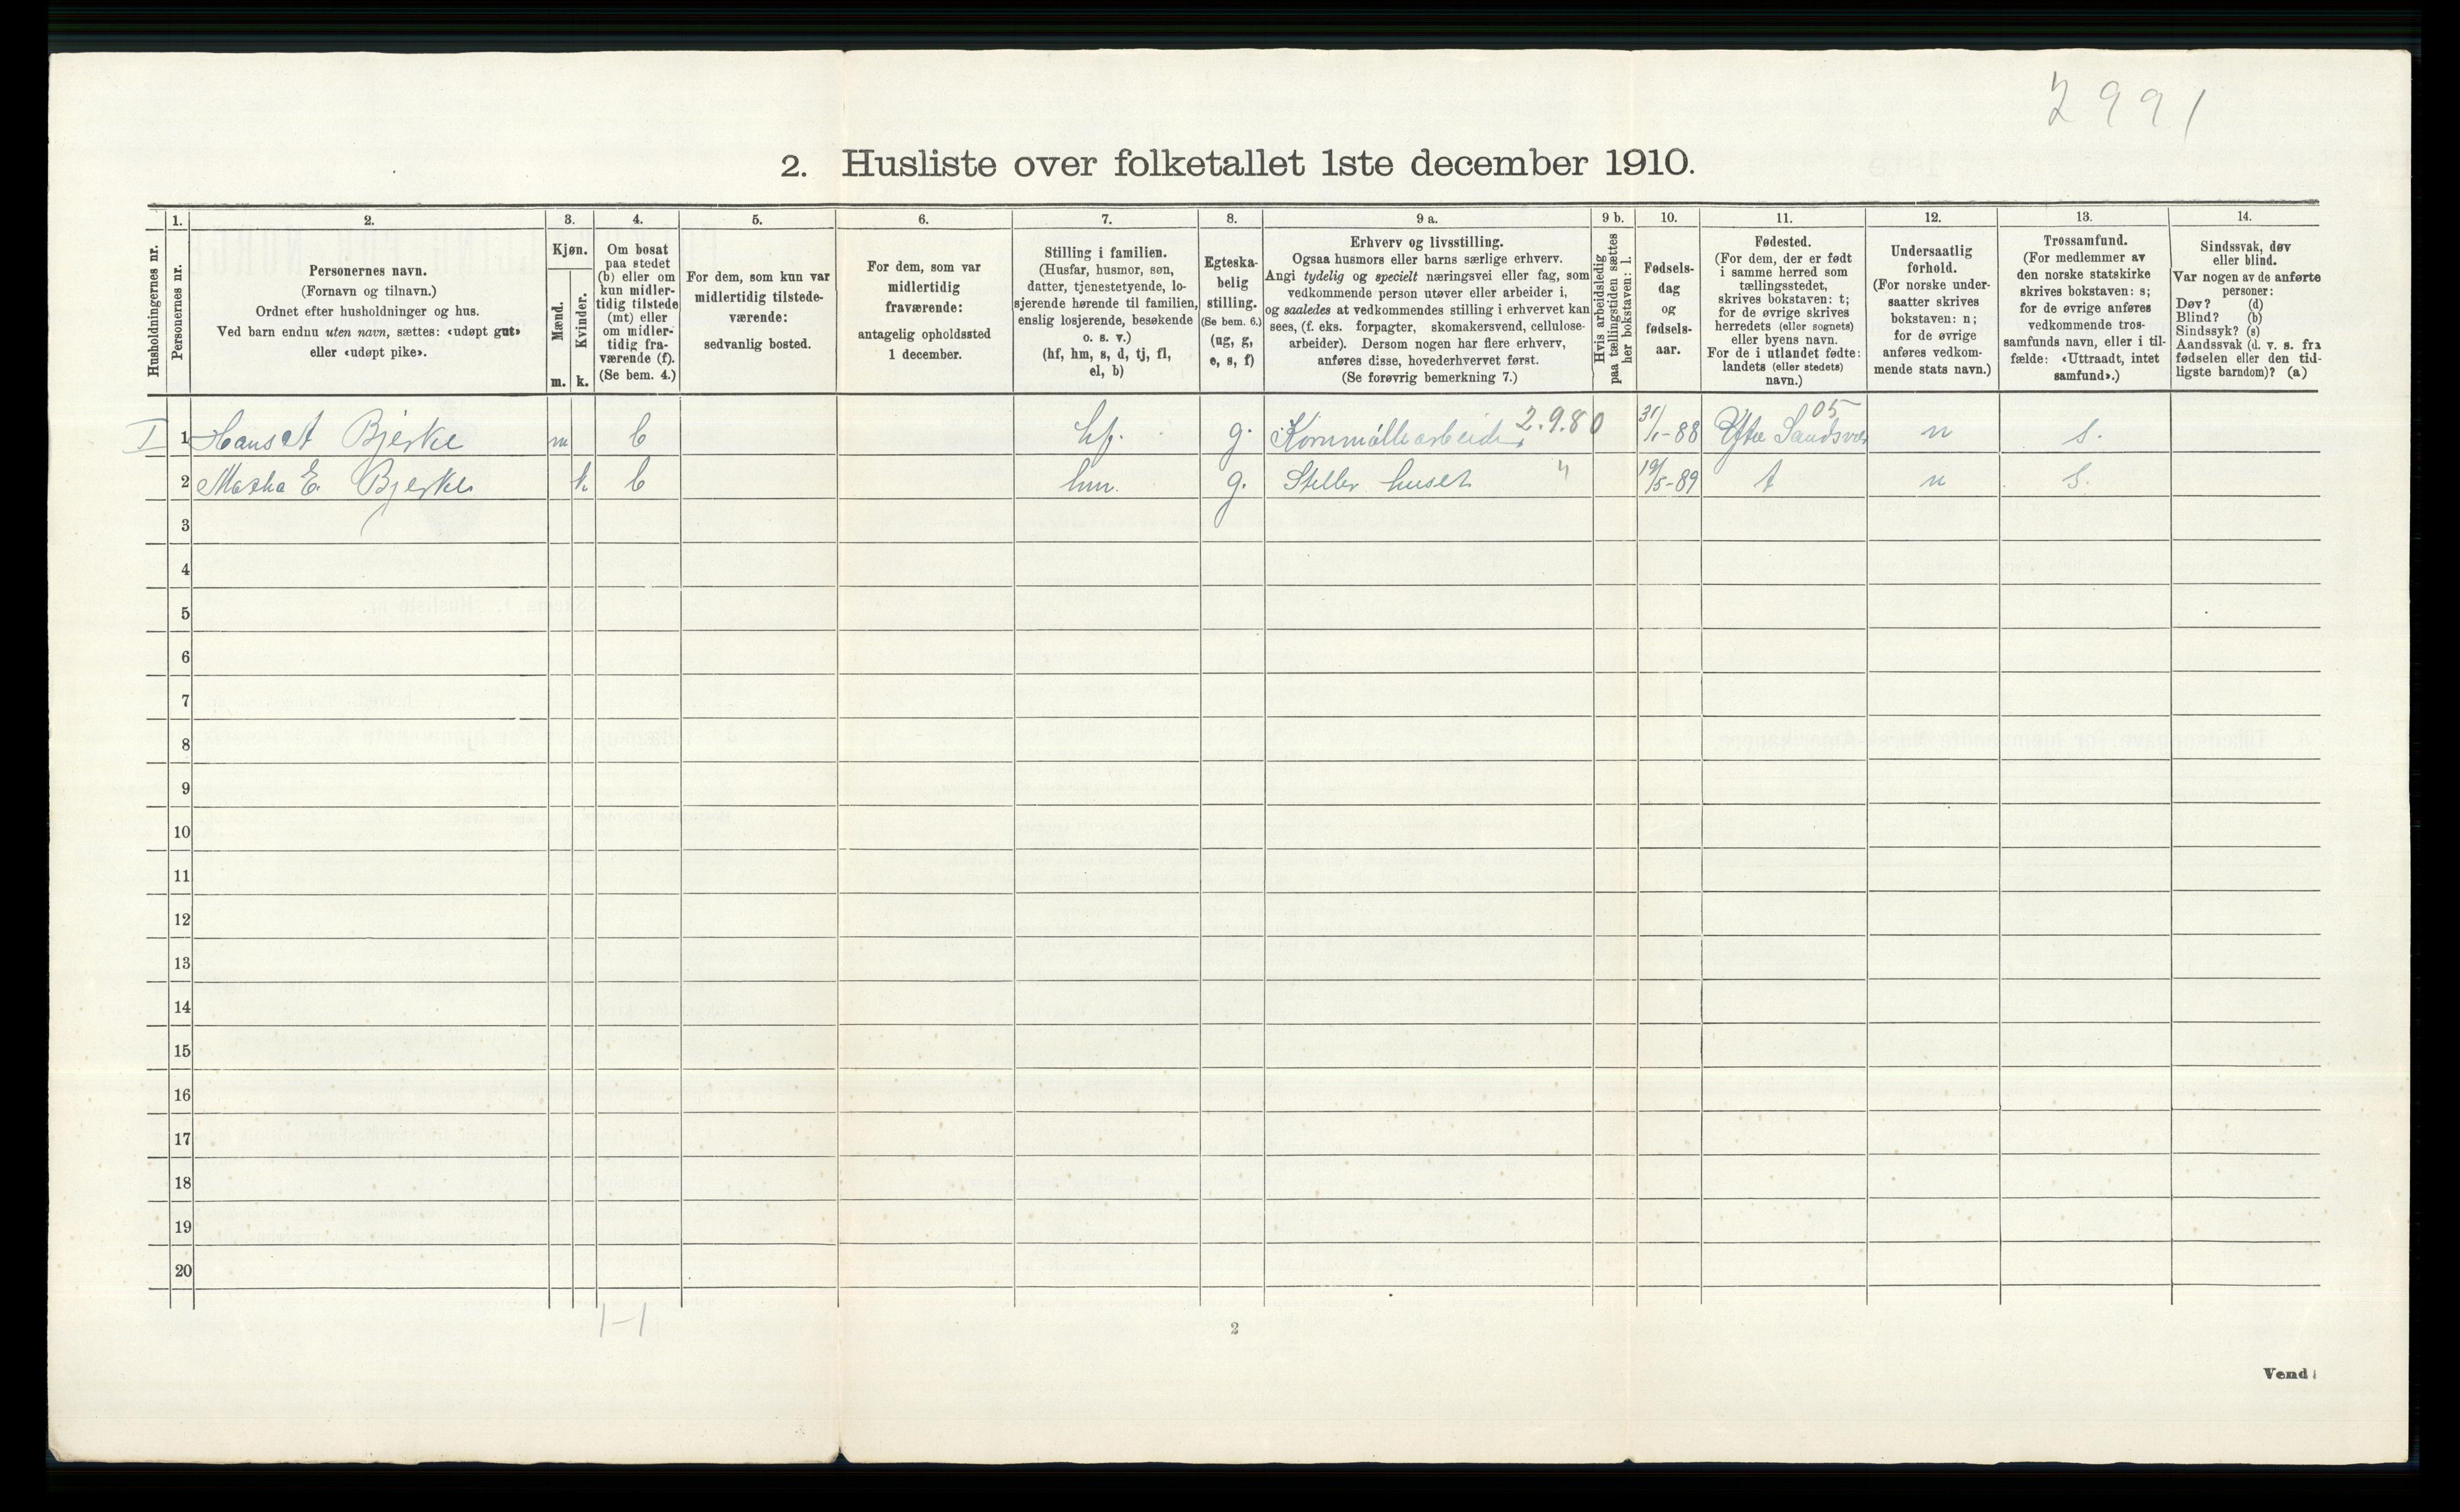 2991
2. Husliste over folketallet 1ste december 1910.
Husholdningernes nr.
1. Personernes nr.
2. Personernes navn.
(Fornavn og tilnavn.)
Ordnet efter husholdninger og hus.
Ved barn endnu uten navn, sættes: «udøpt gut»
eller «udøpt pike».
3. Kjøn.
Mænd. m.
Kvinder. k.
4. Om bosat
paa stedet
(b) eller om
kun midler-
tidig tilstede
(mt) eller
om midler-
tidig fra-
værende (f).
(Se bem. 4.)
5. For dem, som kun var
midlertidig tilstede-
værende:
sedvanlig bosted.
6. For dem, som var
midlertidig
fraværende:
antagelig opholdssted
1 december.
7. Stilling i familien.
(Husfar, husmor, søn,
datter, tjenestetyende, lo-
sjerende hørende til familien,
enslig losjerende, besøkende
o. s. v.)
(hf, hm, s, d, tj, fl,
el, b)
8. Egteska-
belig
stilling.
(Se bem. 6.)
(ug, g,
e, s, f)
9 a. Erhverv og livsstilling.
Ogsaa husmors eller barns særlige erhverv.
Angi tydelig og specielt næringsvei eller fag, som
vedkommende person utøver eller arbeider i,
og saaledes at vedkommendes stilling i erhvervet kan
sees, (f. eks. forpagter, skomakersvend, cellulose-
arbeider). Dersom nogen har flere erhverv,
anføres disse, hovederhvervet først.
(Se forøvrig bemerkning 7.)
9 b. Hvis arbeidsledig
paa tællingstiden sættes
her bokstaven: l.
10. Fødsels-
dag
og
fødsels-
aar.
11. Fødested.
(For dem, der er født
i samme herred som
tællingsstedet,
skrives bokstaven: t;
for de øvrige skrives
herredets (eller sognets)
eller byens navn.
For de i utlandet fødte:
landets (eller stedets)
navn.)
12. Undersaatlig
forhold.
(For norske under-
saatter skrives
bokstaven: n;
for de øvrige
anføres vedkom-
mende stats navn.)
13. Trossamfund.
(For medlemmer av
den norske statskirke
skrives bokstaven: s;
for de øvrige anføres
vedkommende tros-
samfunds navn, eller i til-
fælde: «Uttraadt, intet
samfund».)
14. Sindssvak, døv
eller blind.
Var nogen av de anførte
personer:
Døv? (d)
Blind? (b)
Sindssyk? (s)
Aandssvak (d. v. s. fra
fødselen eller den tid-
ligste barndom)? (a)
I 1 Hans A Bjerke m b hf. g. Kornmøllearbeider 2.9.80 31/1-88 Ytre Sandsvær 05 n s.
2 Martha E. Bjerke k b hm. g. Steller huset " 19/5-89 t n s.
3
4
5
6
7
8
9
10
11
12
13
14
15
16
17
18
19
20
1-1
2
Vend!